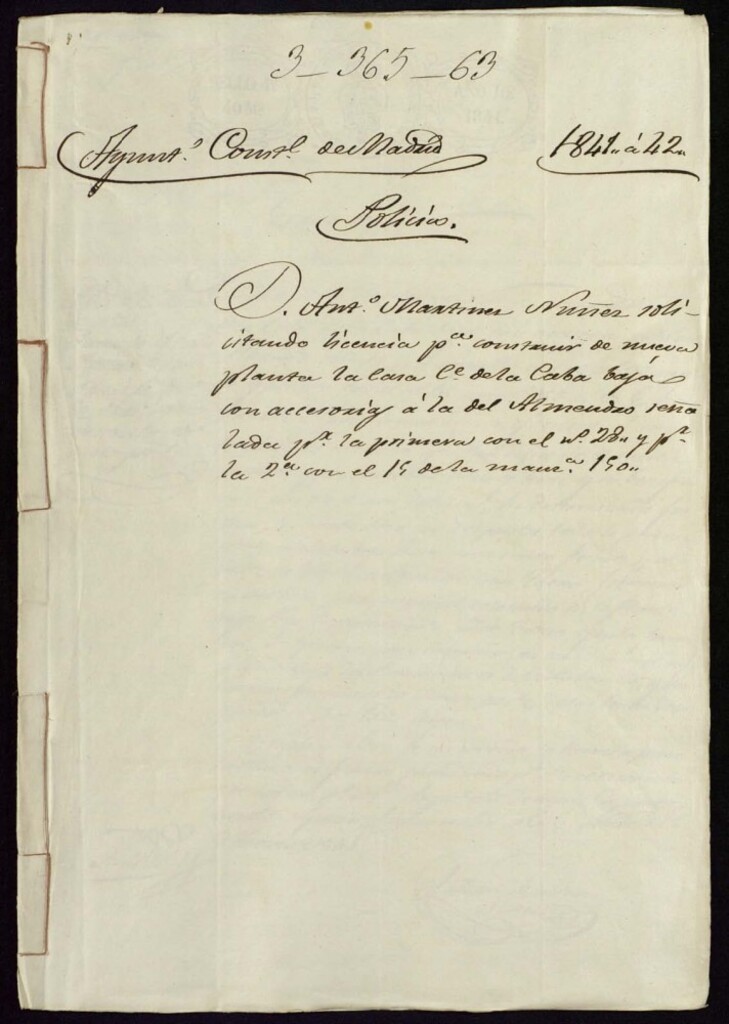 3_365_63
Ayunt.º Const.l de Madrid 1841,, á 42,,
Policia.
D. Ant.º Martinez Nuñez soli-
citando licencia p.ª construir de nueva
planta la Casa C.e de la Caba baja
con accesorias á la del Almendro seña
lada p.r la primera con el n.º 28,, y p.r
la 2.ª con el 15 de la manz.ª 150,,